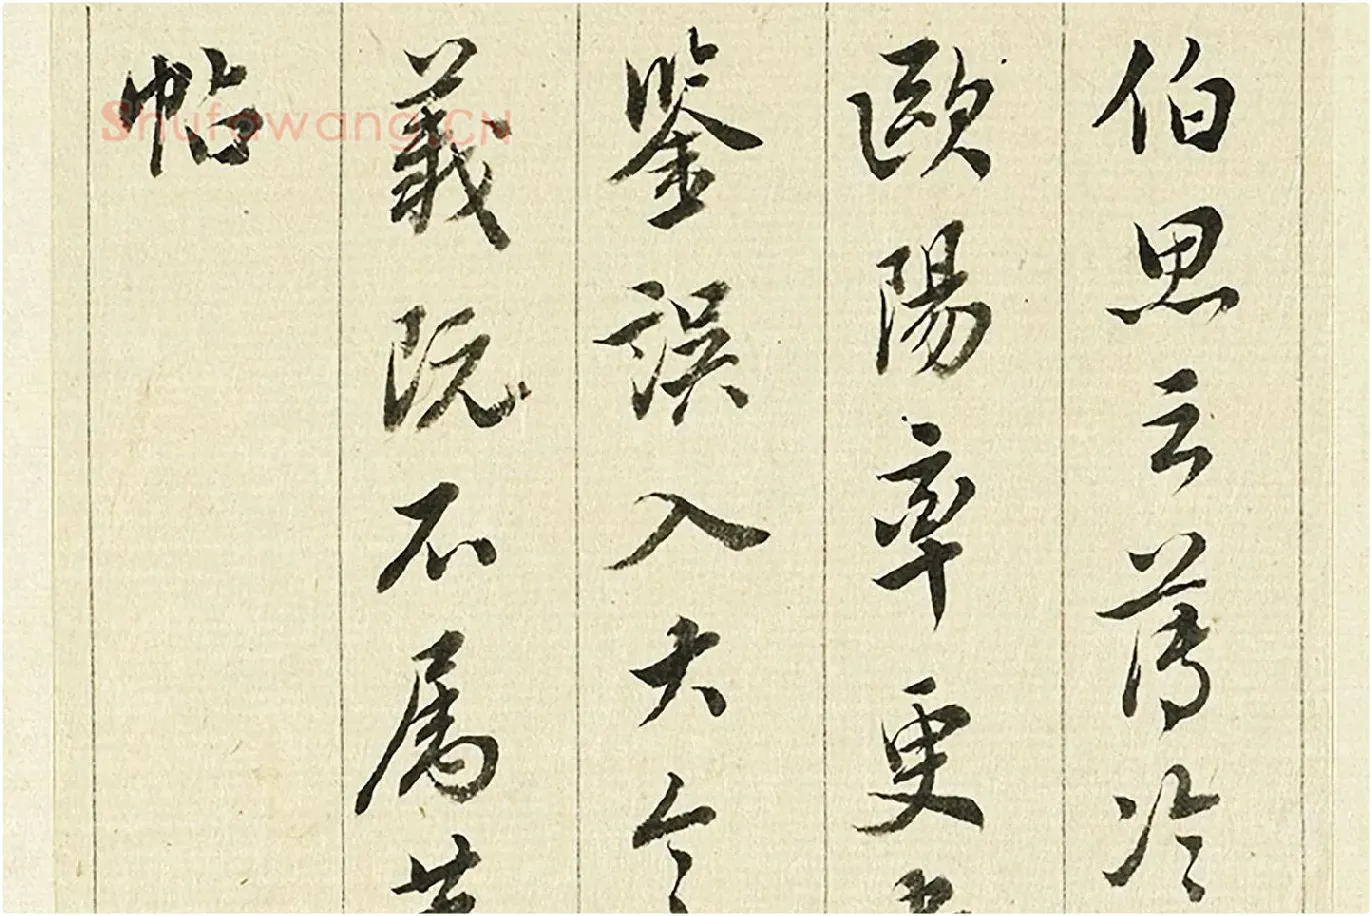 伯思云薄冷
歐陽率更
鉴誤入大令
羲阮不属
帖
Shufawang.CN